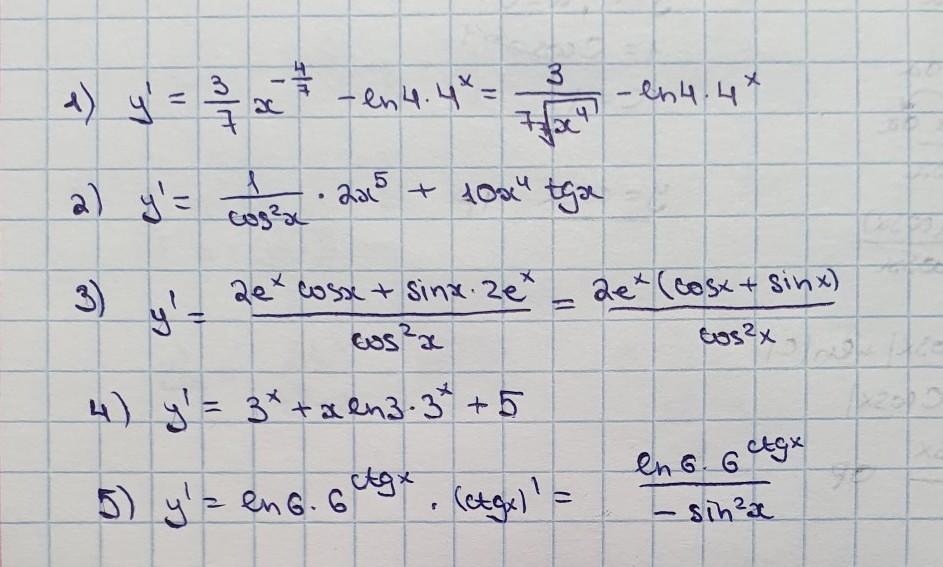 1) y' = 3/7 x^(-4/7) - ln4·4^x = 3/(7 ⁷√(x^4)) - ln4·4^x
2) y' = 1/(cos²x) · 2x^5 + 10x^4 tgx
3) y' = (2e^x cosx + sinx·2e^x)/(cos²x) = (2e^x (cosx + sinx))/(cos²x)
4) y' = 3^x + x ln3·3^x + 5
5) y' = ln6·6^(ctgx) · (ctgx)' = (ln6·6^(ctgx))/(-sin²x)